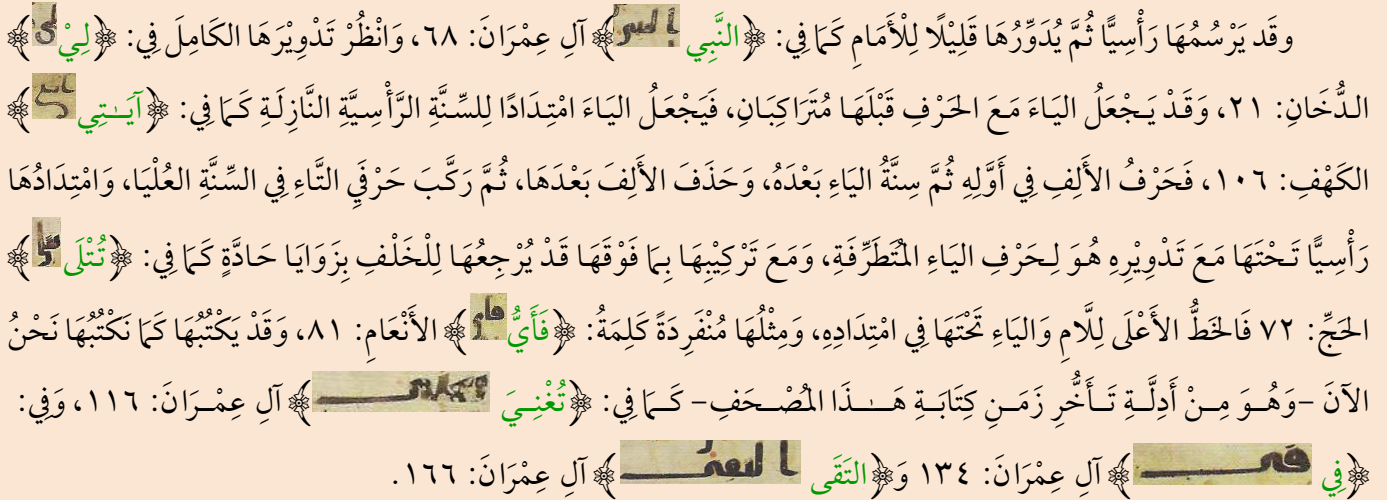 وقَد يَرْسُمُهَا رَأْسِيًّا ثُمَّ يُدَوِّرُهَا قَلِيْلًا لِلْأَمَامِ كَمَا فِي: ﴿النَّبِي﴾ آلِ عِمْرَانَ: ٦٨، وَانْظُرْ تَدْوِيْرَهَا الكَامِلَ فِي: ﴿لِيْ﴾
الدُّخَانِ: ٢١، وَقَدْ يَجْعَلُ اليَاءَ مَعَ الحَرْفِ قَبْلَهَا مُتَرَاكِبَانِ، فَيَجْعَلُ اليَاءَ امْتِدَادًا لِلسِّنَّةِ الرَّأْسِيَّةِ النَّازِلَةِ كَمَا فِي: ﴿آيَــٰتِي﴾
الكَهْفِ: ١٠٦، فَحَرْفُ الأَلِفِ فِي أَوَّلِهِ ثُمَّ سِنَّةُ اليَاءِ بَعْدَهُ، وَحَذَفَ الأَلِفَ بَعْدَهَا، ثُمَّ رَكَّبَ حَرْفَيِ التَّاءِ فِي السِّنَّةِ العُلْيَا، وَامْتِدَادُهَا
رَأْسِيًّا تَحْتَهَا مَعَ تَدْوِيْرِهِ هُوَ لِحَرْفِ اليَاءِ المُتَطَرِّفَةِ، وَمَعَ تَرْكِيْبِهَا بِمَا فَوْقَهَا قَدْ يُرْجِعُهَا لِلْخَلْفِ بِزَوَايَا حَادَّةٍ كَمَا فِي: ﴿تُتْلَى﴾
الحَجِّ: ٧٢ فَالخَطُّ الأَعْلَى لِلَّامِ وَاليَاءِ تَحْتَهَا فِي امْتِدَادِهِ، وَمِثْلُهَا مُنْفَرِدَةً كَلِمَةُ: ﴿فَأَيُّ﴾ الأَنْعَامِ: ٨١، وَقَدْ يَكْتُبُهَا كَمَا نَكْتُبُهَا نَحْنُ
الآنَ -وَهُوَ مِنْ أَدِلَّةِ تَأَخُّرِ زَمَنِ كِتَابَةِ هَــٰذَا المُصْحَفِ- كَمَا فِي: ﴿تُغْنِيَ﴾ آلِ عِمْرَانَ: ١١٦، وَفِي:
﴿فِي﴾ آلِ عِمْرَانَ: ١٣٤ وَ﴿التَقَى﴾ آلِ عِمْرَانَ: ١٦٦.